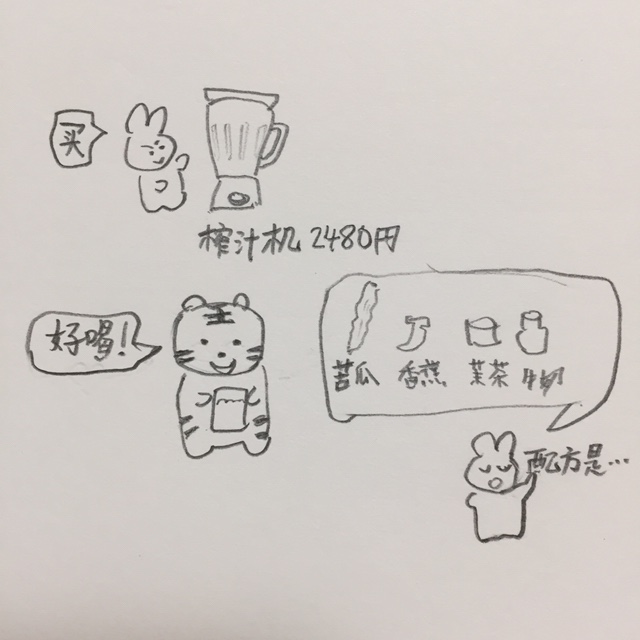 买
榨汁机 2480円
王
好喝!
苦瓜 香蕉 茉茶 牛奶
配方是…